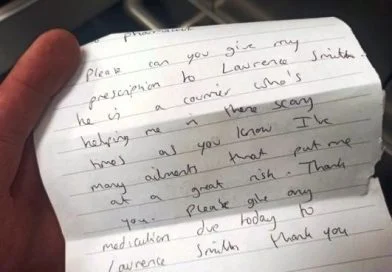 pharmacist
Please can you give my
prescription to Lawrence Smith.
he is a courier who's
helping me in these scary
times as you know I've
many ailments that put me
at a great risk. Thank
you. Please give any
medication due today to
Lawrence Smith Thank you